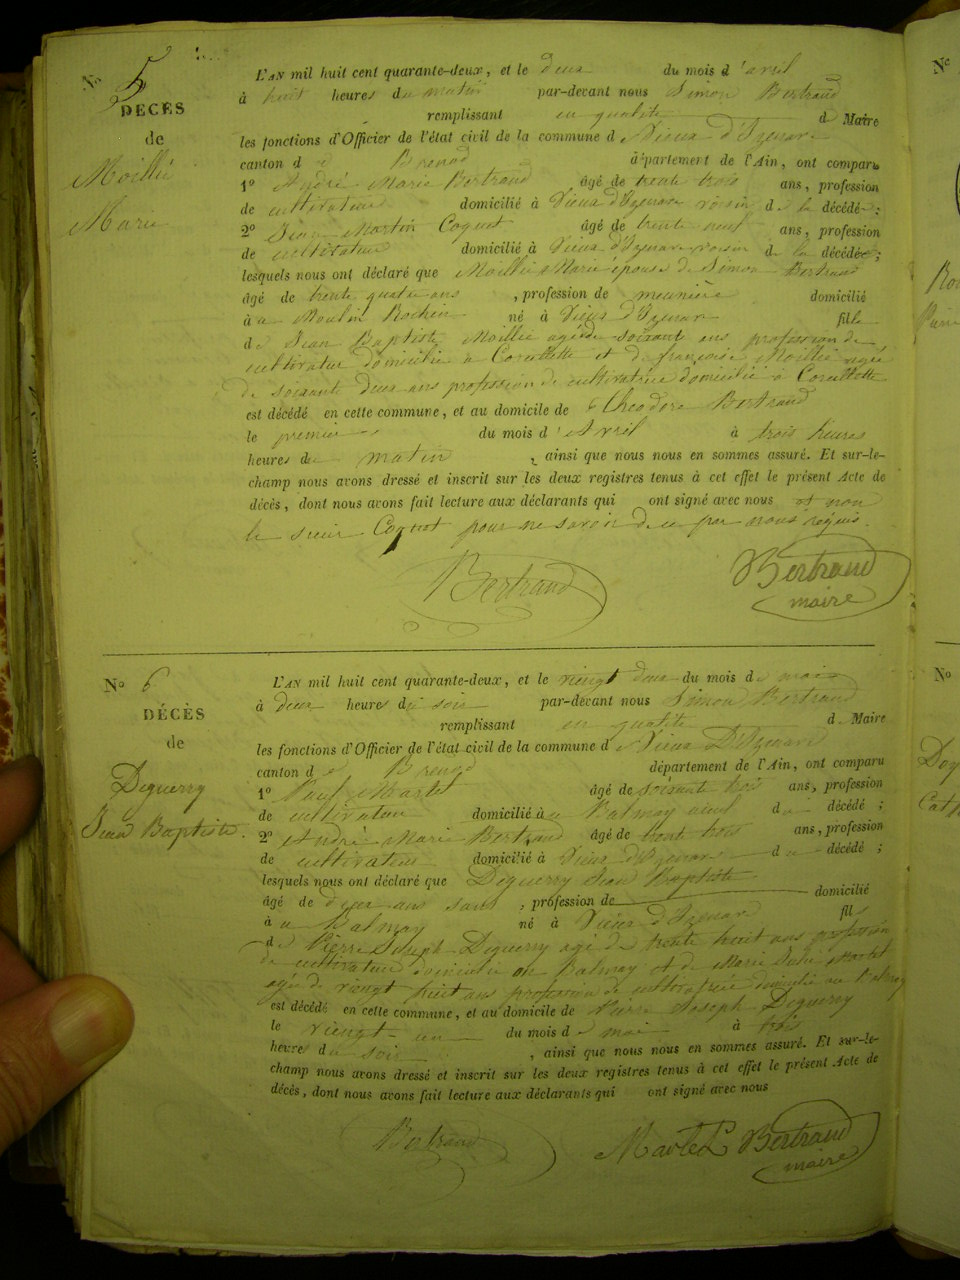 No 5
DÉCÈS
de
Moillie
Marie
L'AN mil huit cent quarante-deux, et le deux du mois d'avril
à huit heures du matin par-devant nous Simon Bertrand
remplissant en qualité de Maire
les fonctions d'Officier de l'état civil de la commune de Vieux d'Izenave
canton de Brenod département de l'Ain, ont comparu
1o André Marie Bertrand âgé de trente trois ans, profession
de cultivateur domicilié à Vieux d'Izenave voisin de la décédée;
2o Jean Martin Coquet âgé de trente neuf ans, profession
de cultivateur domicilié à Vieux d'Izenave voisin de la décédée;
lesquels nous ont déclaré que Moillie Marie épouse de Simon Bertrand
âgé de trente quatre ans, profession de meunière domicilié
à au Moulin né à Vieux d'Izenave fille
de Jean Baptiste Moillie agé de soixante ans profession de
cultivateur domicilié a Corcelette et de françoise Moillie agée
de soixante deux ans profession de cultivatrice domicilié a Corcelette
est décédé en cette commune, et au domicile de Théodore Bertrand
le premier du mois d'Avril à trois heures
heures du matin, ainsi que nous nous en sommes assuré. Et sur-le-
champ nous avons dressé et inscrit sur les deux registres tenus à cet effet le présent Acte de
décès, dont nous avons fait lecture aux déclarants qui ont signé avec nous et non
le sieur Coquet pour ne savoir de ce par nous requis.
Bertrand
Bertrand
maire
No 6
DÉCÈS
de
Deguerry
Jean Baptiste.
L'AN mil huit cent quarante-deux, et le vingt deux du mois de mai
à deux heures du soir par-devant nous Simon Bertrand
remplissant en qualité de Maire
les fonctions d'Officier de l'état civil de la commune de Vieux D'Izenave
canton de Brenod département de l'Ain, ont comparu
1o Martel âgé de soixante trois ans, profession
de cultivateur domicilié à Balmay du décédé;
2o André Marie Bertrand âgé de trente trois ans, profession
de cultivateur domicilié à Vieux d'Izenave du décédé;
lesquels nous ont déclaré que Deguerry Jean Baptiste
âgé de deux ans, profession de domicilié
à au Balmay né à Vieux d'Izenave fils
de Pierre Joseph Deguerry agé de trente huit ans profession
de cultivateur domicilié au Balmay et de Marie Martel
agée de vingt huit ans profession de cultivatrice domicilié au Balmay
est décédé en cette commune, et au domicile de Pierre Joseph Deguerry
le vingt un du mois de mai à trois
heures du soir, ainsi que nous nous en sommes assuré. Et sur-le-
champ nous avons dressé et inscrit sur les deux registres tenus à cet effet le présent Acte de
décès, dont nous avons fait lecture aux déclarants qui ont signé avec nous
Bertrand
Martel Bertrand
maire